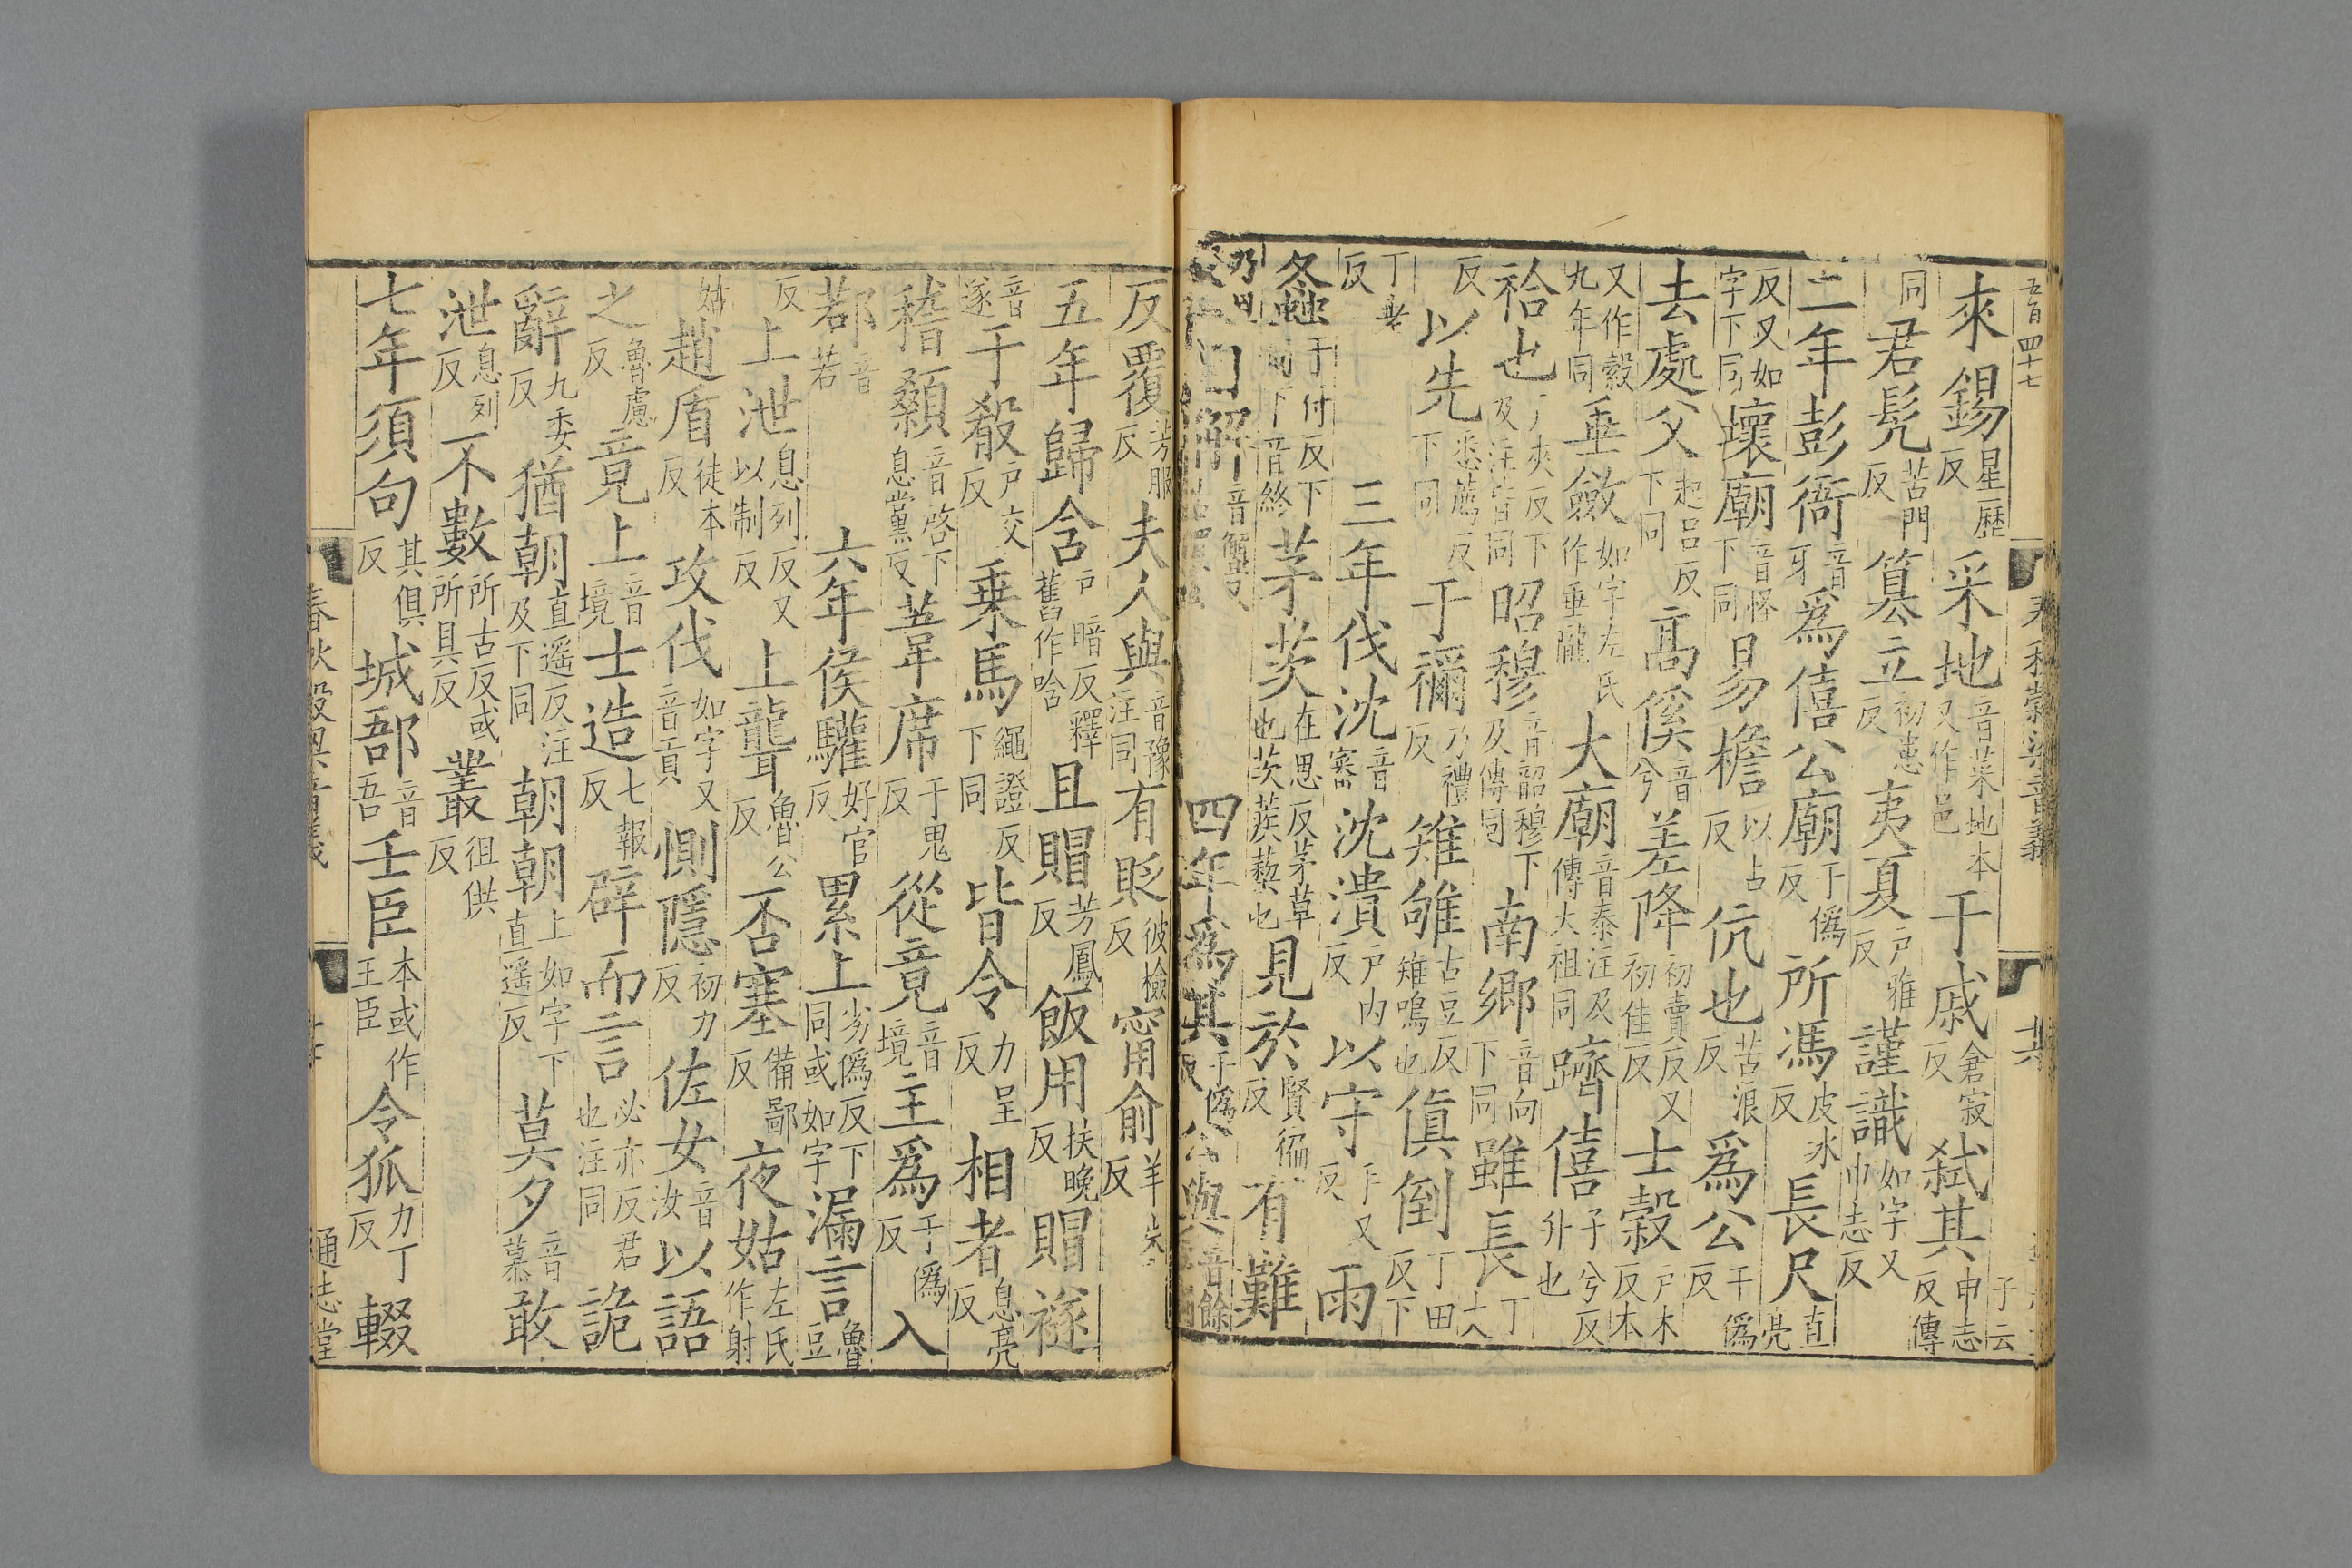 五百四十七
來錫星歷反采地音菜地本又作邑于戚倉寂反弒其申志反傳
同君髡苦門反篡立初患反夷夏戶雅反謹識如字又巾志反
二年彭衙音牙爲僖公廟于僞反所馮皮冰反長尺直亮
反又如字下同壞廟音怪下同易檐以占反伉也苦浪反爲公于僞反
去處父起呂反下同高傒音兮差降初賣反又初佳反士縠戶木反本
又作縠九年同垂斂如字左氏作垂隴大廟音泰注及傳大祖同躋僖子兮反升也
祫也戶夾反下及注皆同昭穆音韶穆下及傳同南鄉音向下同雖長丁丈
反以先悉薦反下同于禰乃禮反雉雊古豆反雉鳴也傎倒丁田反下
丁老反三年伐沈音審沈潰戶內反以守手又反雨
螽于付反下同下音終茅茨在思反茅草也茨蒺藜也見於賢徧反有難
乃旦反 解音蟹 四年爲其于僞反公與音餘
反覆芳服反夫人與音豫注同有貶彼檢反甯俞羊朱反
五年歸含戶暗反釋舊作唅且賵芳鳳反飯用扶晚反賵襚
音遂于殽戶交反乘馬繩證反下同皆令力呈反相者息亮反
稽顙音啓下息黨反葦席于鬼反從竟音境主爲于僞反入
鄀音若六年侯驩好官反累上劣僞反下同或如字漏言魯豆
反上泄息列反又以制反上聾魯公反否塞備鄙反夜姑左氏作射
姑趙盾徒本反攻伐如字又音貢惻隱初力反佐女音汝以語
之魯慮反竟上音境士造七報反辟而言必亦反君也注同詭
辭九委反猶朝直遥反注及下同朝朝上如字下直遥反莫夕音慕敢
泄息列反不數所古反或所具反叢徂供反
七年須句其俱反城郚音吾壬臣本或作王臣令狐力丁反輟
通志堂